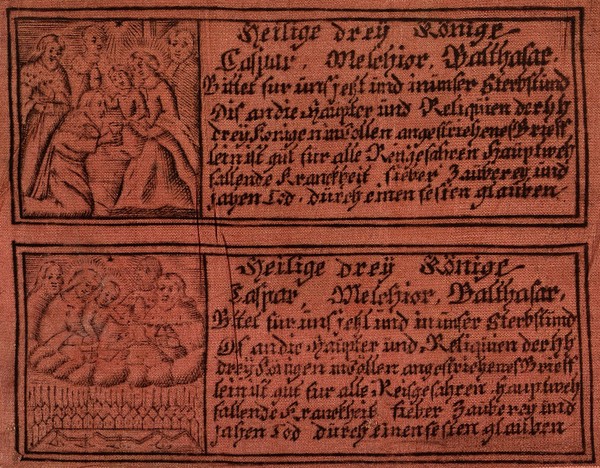 Heilige dreÿ Könige
Caspar, Melchior, Balthasar,
Bittet für uns jetzt und in unser Sterbstünd
Dis an die Häupter und Reliquien der hh
dreÿ Königen in Cöllen angestrichenes Brieff
lein ist gut für alle Reisgefahren Hauptweh
fallende Kranckheit fieber Zauberey und
jähen Tod. dürch einen festen glauben
Heilige dreÿ Könige
Caspar, Melchior, Balthasar,
Bittet für uns jetzt und in unser Sterbstünd
Dis an die Häupter und Reliquien der hh
dreÿ Köngen in Cöllen angestrichenes Brieff
lein ist gut für alle Reisgefahren, hauptweh
fallende Kranckheit fieber Zauberey und
jähen Tod dürch einen festen glauben